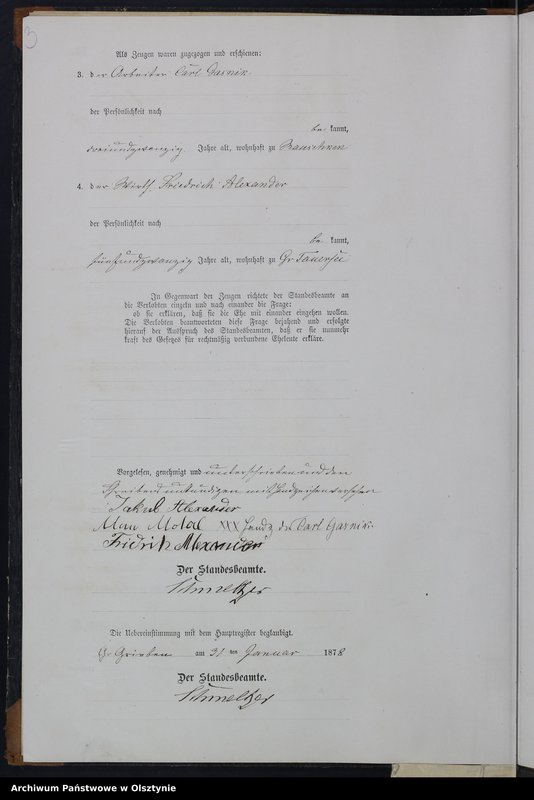 3
Als Zeugen waren zugezogen und erschienen:
3. der Arbeiter Carl Gasnik
der Persönlichkeit nach
be kannt,
dreiundzwanzig Jahre alt, wohnhaft zu Rauschken
4. der Wirth Friedrich Alexander
der Persönlichkeit nach
be kannt,
fünfundzwanzig Jahre alt, wohnhaft zu Gr Tauersee
In Gegenwart der Zeugen richtete der Standesbeamte an
die Verlobten einzeln und nach einander die Frage:
ob sie erklären, daß sie die Ehe mit einander eingehen wollen.
Die Verlobten beantworteten diese Frage bejahend und erfolgte
hierauf der Ausspruch des Standesbeamten, daß er sie nunmehr
kraft des Gesetzes für rechtmäßig verbundene Eheleute erkläre.
Vorgelesen, genehmigt und unterschrieben und den
Schreibens unkundigen mit Handzeichen versehen
Jakub Alexander
XXX Handz des Carl Gasnik
Fridrih Alexander
Der Standesbeamte.
Schmeltzer
Die Uebereinstimmung mit dem Hauptregister beglaubigt.
Gr Grieben am 31 ten Januar 1878
Der Standesbeamte.
Schmeltzer
Archiwum Państwowe w Olsztynie